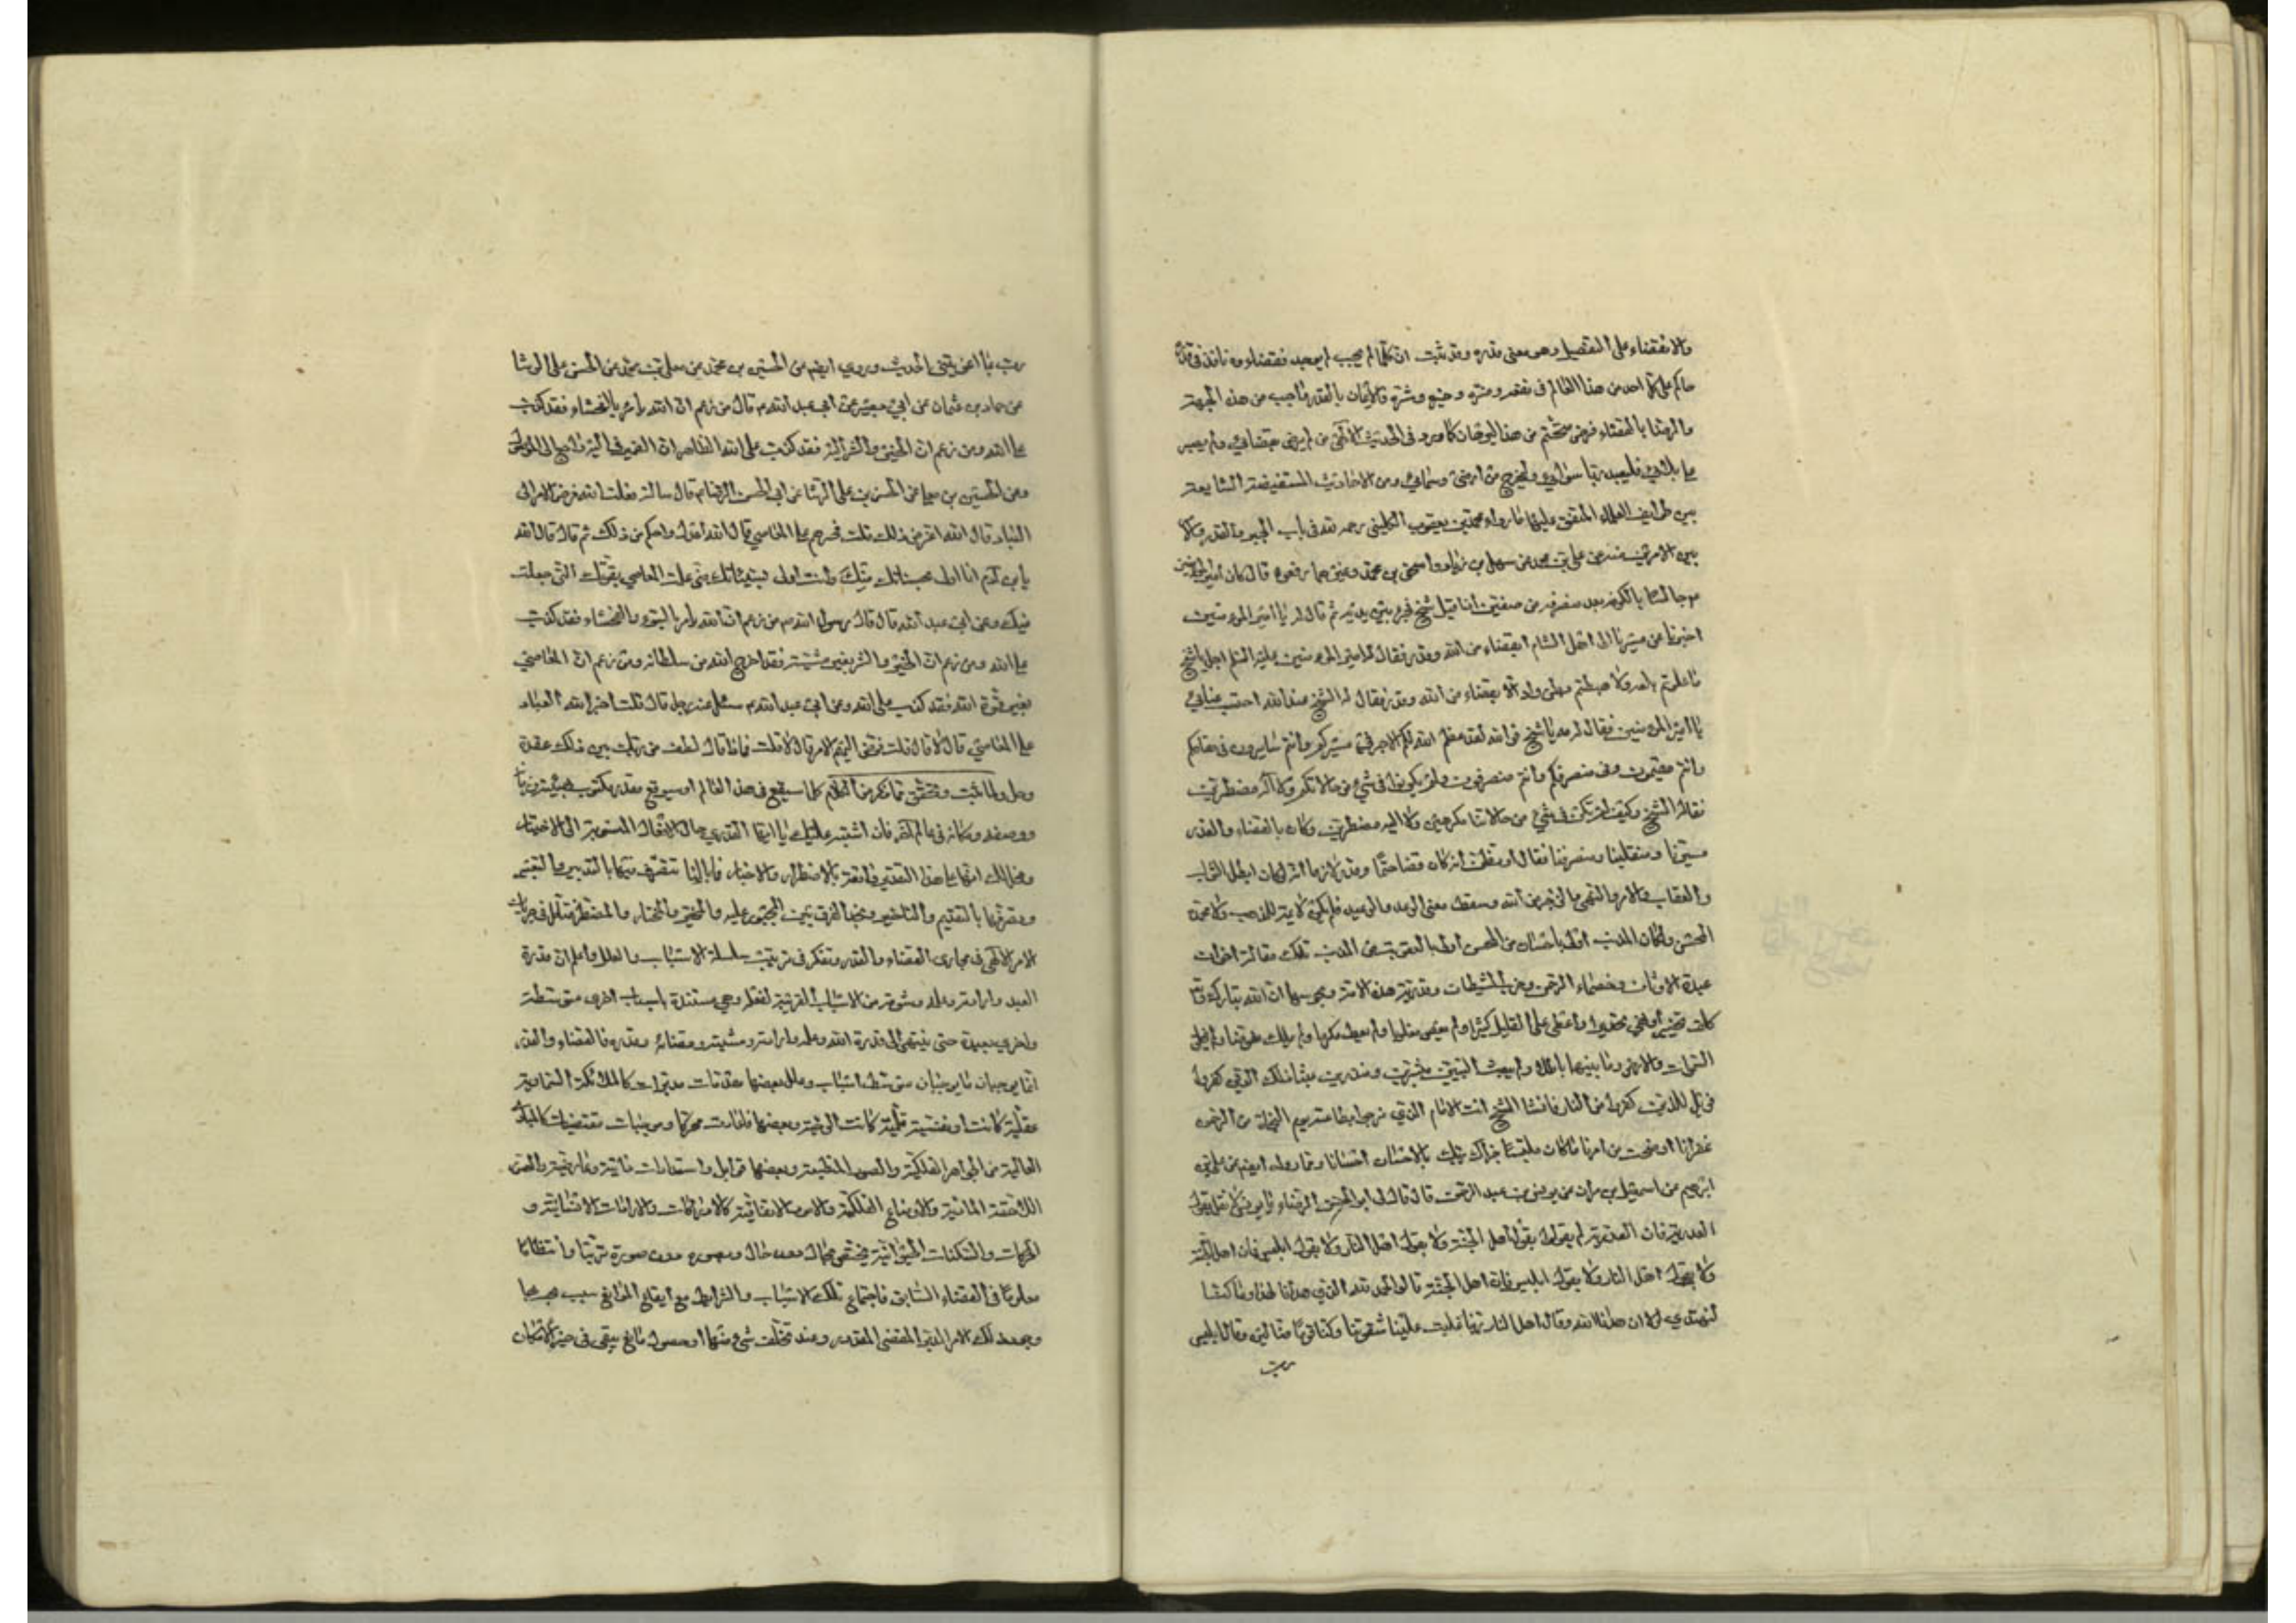 والا فقضاء على التفصيل وهو معنى قدره وقد ثبت ان كلما لم يجب لم يوجد فقضاءوه نافذ
حاكم على كل احد من هذا العالم فى نفعه وضره وخيره وشره فالايمان بالقدر واجب من هذه الجهة
والرضا بالقضاء فرض من هذا كما ورد فى الحديث الالهى من لم يرض بقضائى ولم يصبر
على بلائى فليعبد ربا سوائى وليخرج من ارضى وسمائى ومن الاحاديث المستفيضة الشايعة
بين طوايف العلماء المتفق عليها ما رواه محمد بن يعقوب الكلينى رحمه الله فى باب الجبر والقدر والامر
بين الامرين عن على بن محمد عن سهل بن زياد واسحق بن محمد وغيرهما رفعوه قال كان امير المؤمنين
جالسا بالكوفة بعد منصرفه من صفين اذ اقبل شيخ فجثى بين يديه ثم قال له يا امير المؤمنين
اخبرنا عن مسيرنا الى اهل الشام ابقضاء من الله وقدر فقال امير المؤمنين عليه السلم اجل يا شيخ
ما علوتم تلعة ولا هبطتم بطن واد الا بقضاء من الله وقدر فقال له الشيخ عند الله احتسب عنائى
يا امير المؤمنين فقال له مه يا شيخ فوالله لقد عظم الله لكم الاجر فى مسيركم وانتم سايرون وفى مقامكم
وانتم مقيمون وفى منصرفكم وانتم منصرفون ولم تكونوا فى شئ من حالاتكم مكرهين ولا اليه مضطرين
فقال له الشيخ وكيف لم نكن فى شئ من حالاتنا مكرهين ولا اليه مضطرين وكان بالقضاء والقدر
مسيرنا ومنقلبنا ومنصرفنا فقال له وتظن انه كان قضاء حتما وقدرا لازما انه لو كان كذلك لبطل الثواب
والعقاب والامر والنهى والزجر من الله وسقط معنى الوعد والوعيد فلم تكن لائمة للمذنب ولا محمدة
للمحسن ولكان المذنب اولى بالاحسان من المحسن ولكان المحسن اولى بالعقوبة من المذنب تلك مقالة اخوان
عبدة الاوثان وخصماء الرحمن وحزب الشيطان وقدرية هذه الامة ومجوسها ان الله تبارك وتعالى
كلف تخييرا ونهى تحذيرا واعطى على القليل كثيرا ولم يعص مغلوبا ولم يطع مكرها ولم يملك مفوضا ولم يخلق
السموات والارض وما بينهما باطلا ولم يبعث النبيين مبشرين ومنذرين عبثا ذلك ظن الذين كفروا
فويل للذين كفروا من النار فانشا الشيخ انت الامام الذى نرجو بطاعته يوم النجاة من الرحمن
غفرانا اوضحت من امرنا ما كان ملتبسا جزاك ربك بالاحسان احسانا ومما رواه ايضا عن على بن
ابرهيم عن اسمعيل بن مران عن يونس بن عبد الرحمن قال قال لى ابو الحسن الرضاء يا يونس لا تقل بقول
القدرية فان القدرية لم يقولوا بقول اهل الجنة ولا بقول اهل النار ولا بقول ابليس فان اهل الجنة
ولا بقول اهل النار ولا بقول ابليس فان اهل الجنة قالوا الحمد لله الذى هدانا لهذا وما كنا
لنهتدى لولا ان هدانا الله وقال اهل النار ربنا غلبت علينا شقوتنا وكنا قوما ضالين وقال ابليس
رب
رب بما اغويتنى الحديث وروى ايضا عن الحسين بن محمد عن معلى بن محمد عن الحسن بن على الوشا
عن حماد بن عثمان عن ابى بصير عن ابى عبد الله ع قال من زعم ان الله يامر بالفحشاء فقد كذب
على الله ومن زعم ان الخير والشر اليه فقد كذب على الله الظاهر ان الضمير فى اليه راجع الى الموصول
وعن الحسين بن معلى عن الحسن بن على الوشا عن ابى الحسن الرضا ع قال سالته فقلت الله فوض الامر الى
العباد قال الله اعز من ذلك قلت فجبرهم على المعاصى قال الله اعدل واحكم من ذلك ثم قال قال الله
يابن آدم انا اولى بحسناتك منك وانت اولى بسيئاتك منى عملت المعاصى بقوتك التى جعلت
فيك وعن ابى عبد الله قال قال رسول الله ص من زعم ان الله يامر بالسوء والفحشاء فقد كذب
على الله ومن زعم ان الخير والشر بغير مشيته فقد اخرج الله من سلطانه ومن زعم ان المعاصى
بغير قوة الله فقد كذب على الله وعن ابى عبد الله ع سئل عنه رجل قال قلت اجبر الله العباد
على المعاصى قال لا قال قلت ففوض اليهم الامر قال لا قلت فماذا قال لطف من ربك بين ذلك عقدة
وحل ولما ثبت وتحقق مما ذكر من الكلام كلما سيقع فى هذا العالم او سيوقع مقدر مكتوب بهيئته وزمانه
ووصفه ومكانه فى عالم آخر فان اشتبه عليك يا ايها القدرى حال الافعال المنسوبة الى الاختيار
وبخالك انها على هذا التقدير واقعة بالاضطرار والاجبار فما بالنا نتصرف فيها بالتدبير والتغيير
ونصرفها بالتقديم والتاخير ونجد الفرق بين المجبور عليه والمخير والمختار والمضطر فتامل فى جريان
الامر الالهى فى مجارى القضاء والقدر وتفكر فى ترتيب سلسلة الاسباب والعلل واعلم ان قدرة
العبد وارادته وعلمه وشوقه من الاسباب القريبة لفعله وهى مستندة باسباب اخرى متوسطة
واخرى بعيدة حتى ينتهى الى قدرة الله وعلمه وارادته ومشيته وقضائه وقدره فالقضاء والقدر
انما يوجبان ما يوجبان بتوسط اسباب وعلل بعضها مقدمات مدبرات كالملائكة السماوية
عقلية كانت او نفسية قلمية كانت او لوحية وبعضها فاعلات محركا وموجبات مقتضيات كالمبادى
العالية من الجواهر الفلكية والصور المنطبعة وبعضها قوابل واستعدادات ذاتية وعارضية والصور
اللاحقة المادية والاوضاع الفلكية والامور الاتفاقية كالادراكات والارادات الانسانية و
الحركات والسكنات الحيوانية يختص بحال دون حال وبصورة دون صورة ترتيبا وانتظاما
معلوما فى القضاء السابق فاجتماع تلك الاسباب والشرايط مع ارتفاع الموانع سبب يجب عنها
وجود ذلك الامر المدبر المقضى المقدر وعند تخلف شئ منها او حصول مانع يبقى فى حيز الامكان